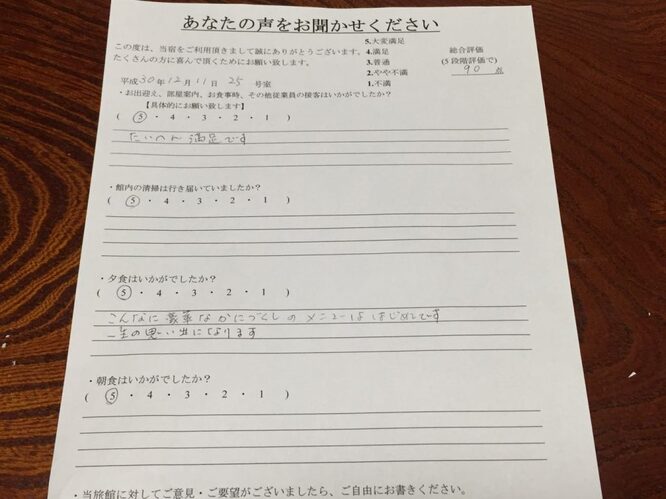 あなたの声をお聞かせください
この度は、当宿をご利用頂きまして誠にありがとうございます。
たくさんの方に喜んで頂くためにお願い致します。
5.大変満足
4.満足
3.普通
2.やや不満
1.不満
総合評価
(5段階評価で)
90 点
平成30年12月11日 25号室
・お出迎え、部屋案内、お食事時、その他従業員の接客はいかがでしたか?
【具体的にお願い致します】
( 5 ・ 4 ・ 3 ・ 2 ・ 1 )
たいへん満足です
・館内の清掃は行き届いていましたか?
( 5 ・ 4 ・ 3 ・ 2 ・ 1 )
・夕食はいかがでしたか?
( 5 ・ 4 ・ 3 ・ 2 ・ 1 )
こんなに豪華なかにづくしのメニューははじめてです
一生の思い出になります
・朝食はいかがでしたか?
( 5 ・ 4 ・ 3 ・ 2 ・ 1 )
・当旅館に対してご意見・ご要望がございましたら、ご自由にお書きください。